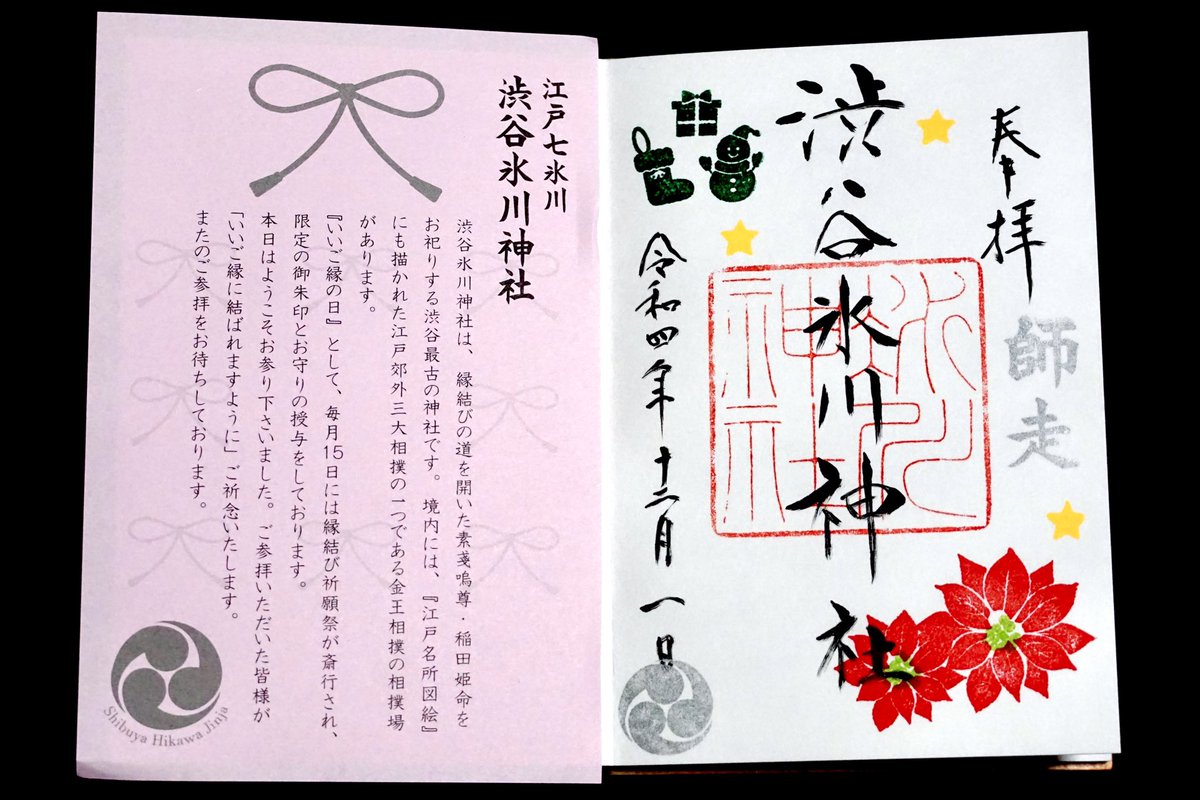 奉拝
師走
渋谷氷川神社
氷川神社
令和四年十二月一日
江戸七氷川
渋谷氷川神社
渋谷氷川神社は、縁結びの道を開いた素戔嗚尊・稲田姫命を
お祀りする渋谷最古の神社です。境内には、『江戸名所図絵』
にも描かれた江戸郊外三大相撲の一つである金王相撲の相撲場
があります。
『いいご縁の日』として、毎月15日には縁結び祈願祭が斎行され、
限定の御朱印とお守りの授与をしております。
本日はようこそお参り下さいました。ご参拝いただいた皆様が
「いいご縁に結ばれますように」ご祈念いたします。
またのご参拝をお待ちしております。
Shibuya Hikawa Jinja